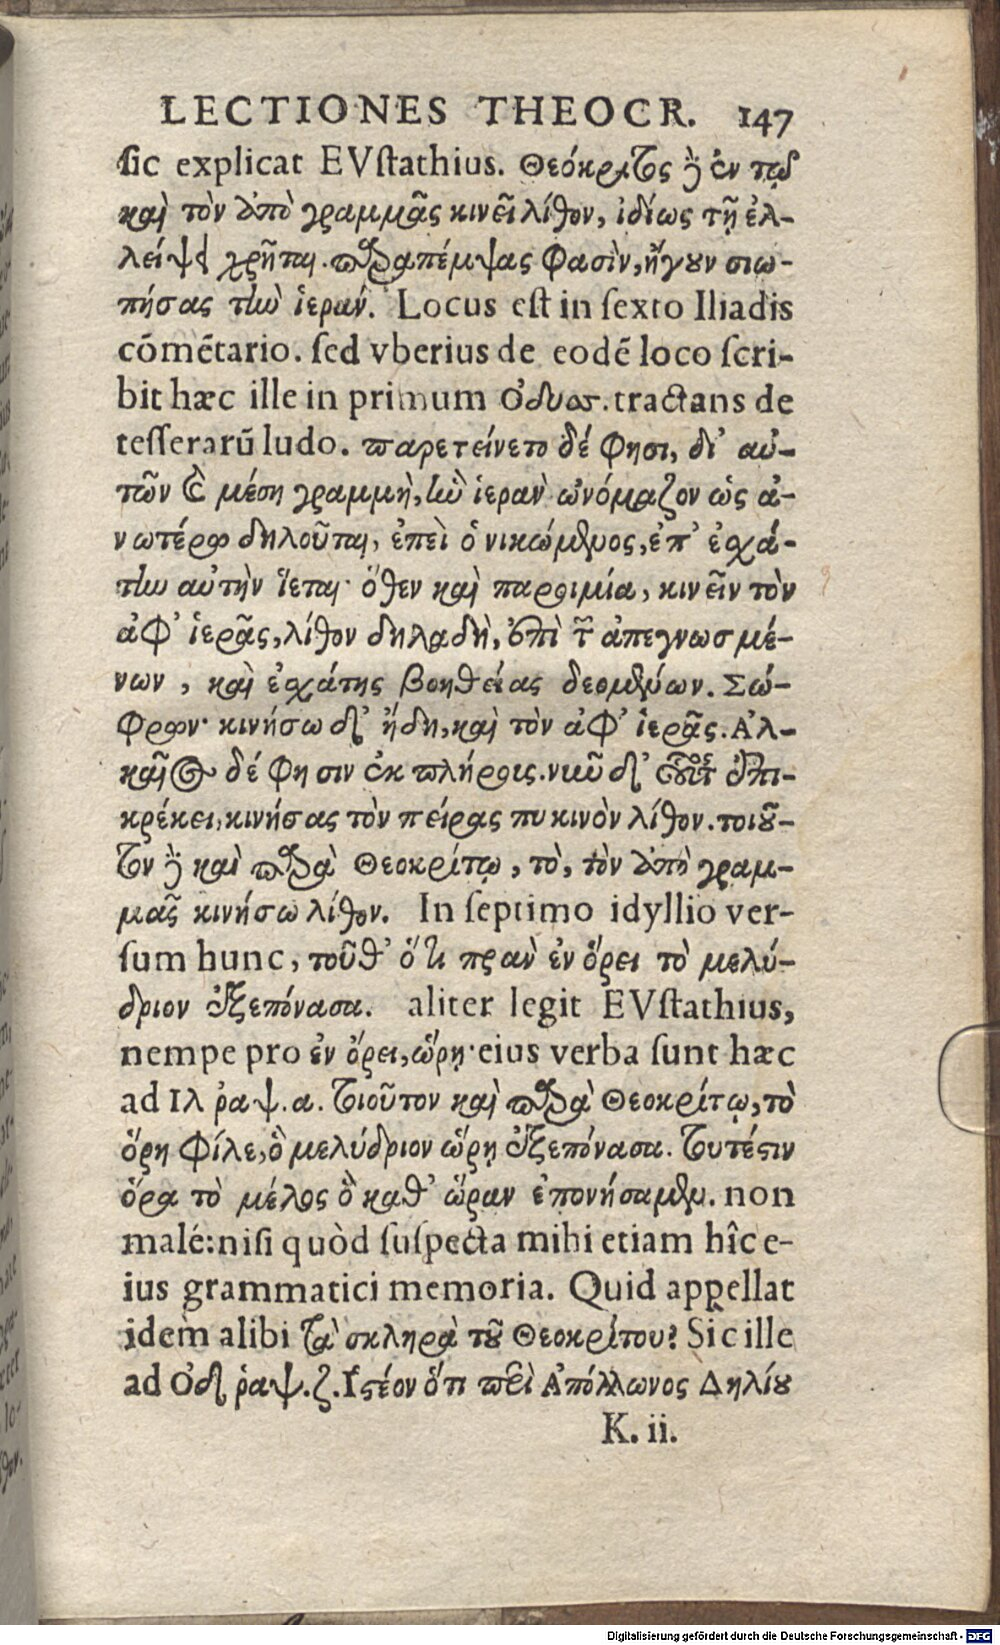 LECTIONES THEOCR. 147
sic explicat EVstathius. Θεόκριτος ἢ ἐν τῷ
καὶ τὸν ἀπὸ γραμμᾶς κινεῖ λίθον, ἰδίως τῇ ἐλ-
λείψει χρῆται. παραπέμψας φασὶν, ἤγουν σιω-
πήσας τὴν ἱεράν. Locus est in sexto Iliadis
cōmētario. sed vberius de eodē loco scri-
bit hæc ille in primum Ὀδυσ. tractans de
tesserarū ludo. παρετείνετο δέ φησι, δι' αὐ-
τῶν καὶ μέση γραμμὴ, ἣν ἱερὰν ὠνόμαζον ὡς ἀ-
νωτέρω δηλοῦται, ἐπεὶ ὁ νικώμενος, ἐπ' ἐσχά-
την αὐτὴν ἵεται· ὅθεν καὶ παροιμία, κινεῖν τὸν
ἀφ' ἱερᾶς, λίθον δηλαδὴ, ἐπὶ τῶν ἀπεγνωσμέ-
νων, καὶ ἐσχάτης βοηθείας δεομένων. Σώ-
φρων· κινήσω δ' ἤδη, καὶ τὸν ἀφ' ἱερᾶς. Ἀλ-
καῖος δέ φησιν ἐκ πλήρους. νιιῦ δ' οὗτος ἐπι-
κρέκει, κινήσας τὸν πείρας πυκινὸν λίθον. τοιοῦ-
τον ἢ καὶ παρὰ Θεοκρίτῳ, τὸ, τὸν ἀπὸ γραμ-
μᾶς κινήσω λίθον. In septimo idyllio ver-
sum hunc, τοῦθ' ὅτι πρὰν ἐν ὄρει τὸ μελύ-
δριον ἐξεπόνασα. aliter legit EVstathius,
nempe pro ἐν ὄρει, ὥρῃ· eius verba sunt hæc
ad Ιλ ῥαψ. α. τοιοῦτον καὶ παρὰ Θεοκρίτῳ, τὸ
ὅρη φίλε, ὃ μελύδριον ὥρῃ ἐξεπόνασα. τουτέστιν
ὅρα τὸ μέλος ὃ καθ' ὥραν ἐπονήσαμεν. non
malé: nisi quòd suspecta mihi etiam hîc e-
ius grammatici memoria. Quid appellat
idem alibi τὰ σκληρὰ τοῦ Θεοκρίτου? Sic ille
ad Ὀδ ῥαψ. ζ. Ἰστέον ὅτι περὶ Ἀπόλλωνος Δηλίου
K. ii.
Digitalisierung gefördert durch die Deutsche Forschungsgemeinschaft - DFG